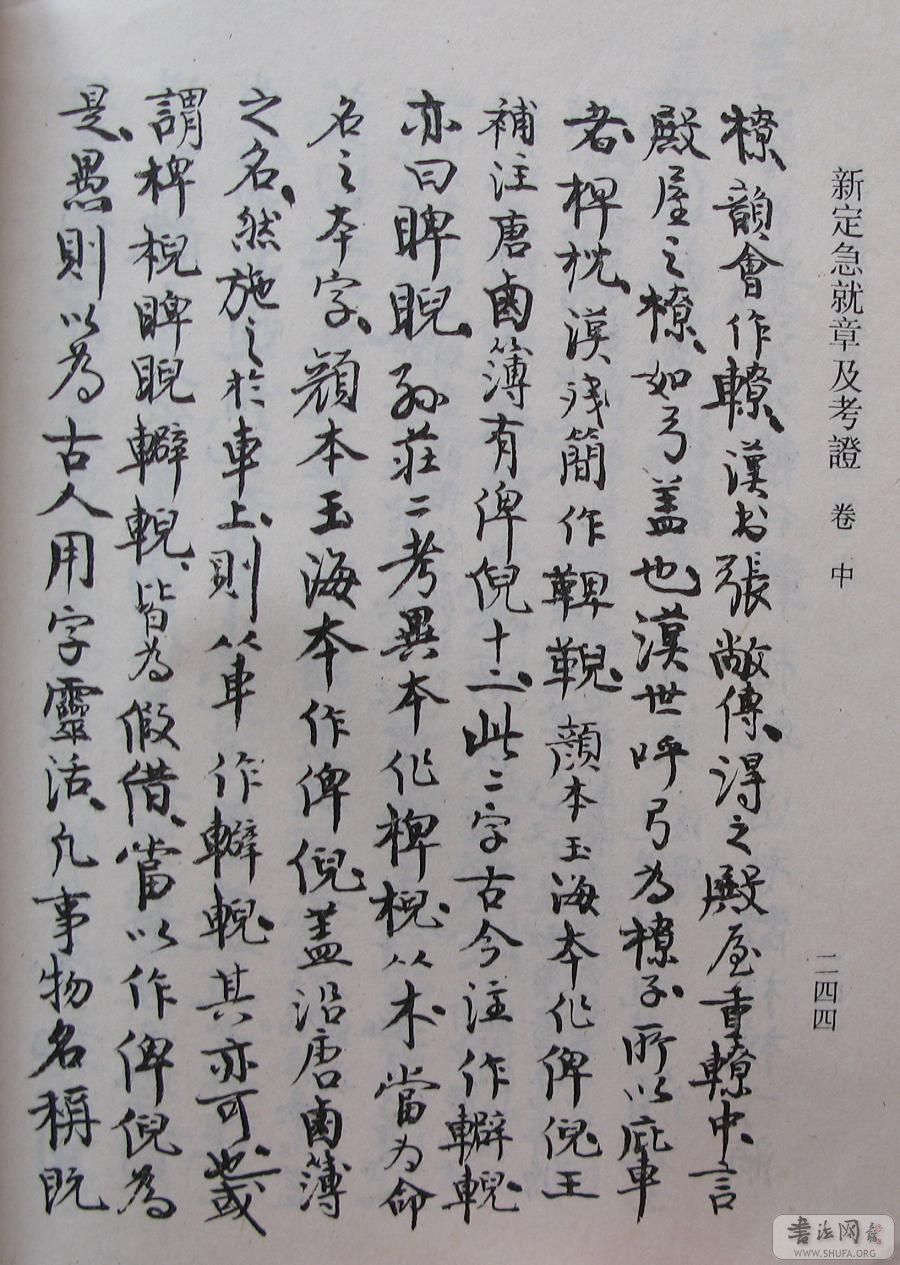 新定急就章及考證 卷中 二四四
橑、韻會作轑、漢书張敞傳、得之殿屋重轑中、言
殿屋之橑、如弓盖也、漢世呼弓為橑子、所以庇車
者、椑枕、漢残簡作鞞䩫、顏本玉海本作俾倪、王
補注唐鹵簿有俾倪十二、此二字古今注作轓輗
亦曰睥睨、孙莊二考異本作椑棿、从木當为命
名之本字、顏本玉海本作俾倪、盖沿唐鹵簿
之名、然施之於車上、則从車作輗、其亦可也、或
謂椑棿睥睨輗、皆為假借、當以作俾倪為
是、愚則以為古人用字靈活、凡事物名稱既
書法网
WWW.SHUFA.ORG